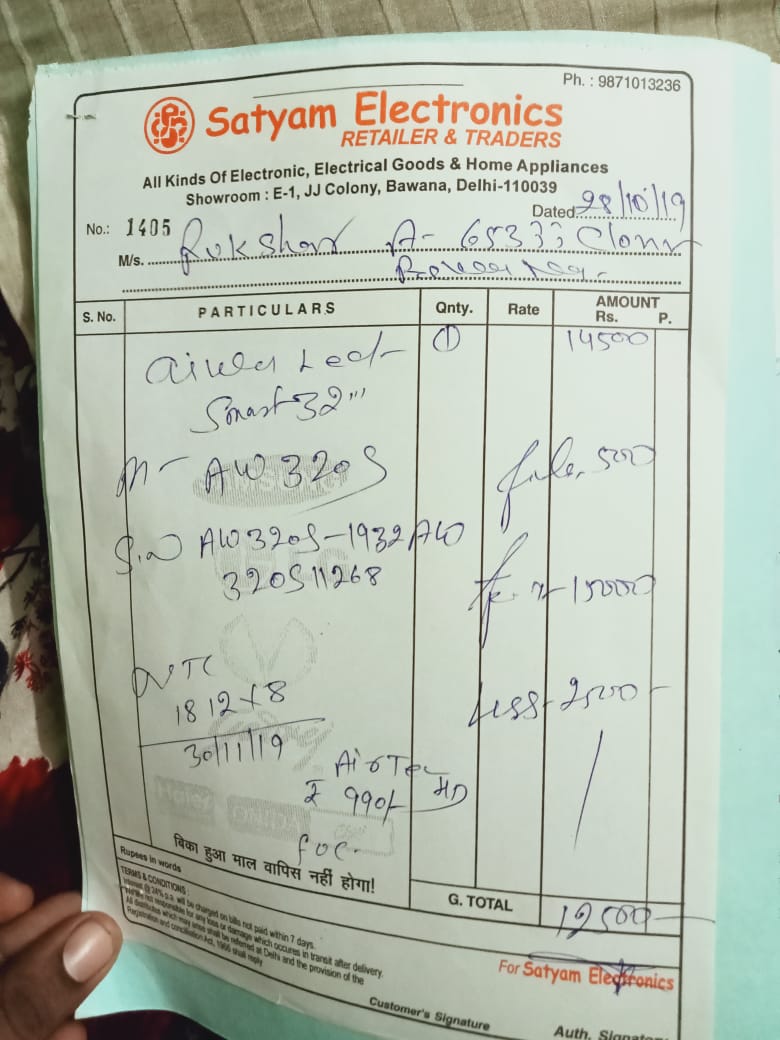 Ph. : 9871013236
Satyam Electronics
RETAILER & TRADERS
All Kinds Of Electronic, Electrical Goods & Home Appliances
Showroom : E-1, JJ Colony, Bawana, Delhi-110039
Dated 28/10/19
No.: 1405
M/s. Rukshar A- 653
S. No. PARTICULARS Qnty. Rate AMOUNT Rs. P.
Led 1 14500
Smart 32"
M- AW320S 500
S.N AW320S-1932AW
320S11268 15000
Less- 2500-
1812+8
30/11/19
AirTel HD
₹ 990/-
foc.
बिका हुआ माल वापिस नहीं होगा!
Rupees in words
G. TOTAL 12500
TERMS & CONDITIONS :
Interest @ 24% p.a. will be charged on bills not paid within 7 days.
We are not responsible for any loss or damage which occures in transit after delivery.
All distributes which may arise shall be referred at Delhi and the provision of the
Registration and conciliation Act, 1996 shall reply
For Satyam Electronics
Customer's Signature
Auth. Signatory